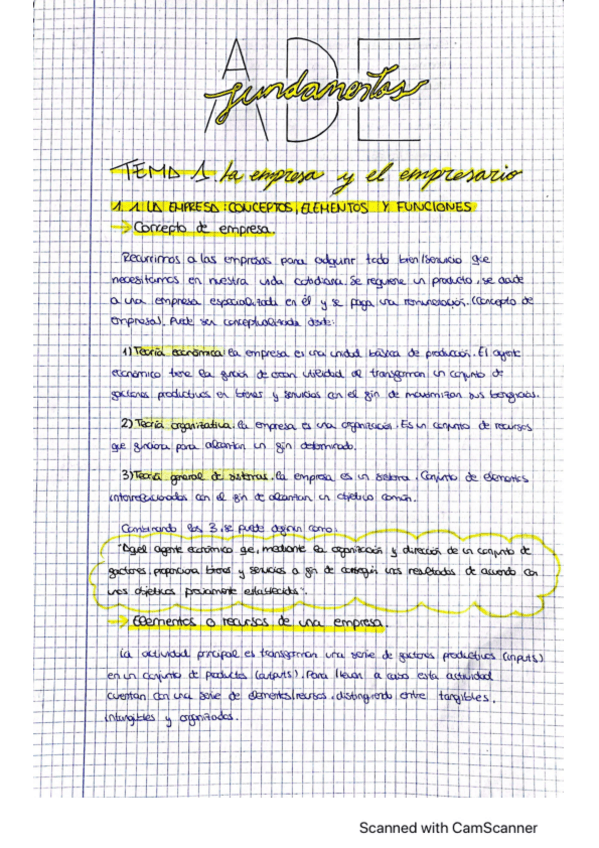 ADE
fundamentos
TEMA 1. La empresa y el empresario
1.1 LA EMPRESA: CONCEPTOS, ELEMENTOS Y FUNCIONES
→ Concepto de empresa.
Recurrimos a las empresas para adquirir todo bien/servicio que
necesitamos en nuestra vida cotidiana. Se requiere un producto, se acude
a una empresa especializada en él y se paga una remuneración. (Concepto de
empresa). Puede ser conceptualizada desde:
1) Teoría económica. La empresa es una unidad básica de producción. El agente
económico tiene la función de crear utilidad al transformar un conjunto de
factores productivos en bienes y servicios con el fin de maximizar sus beneficios.
2) Teoría organizativa. La empresa es una organización. Es un conjunto de recursos
que funciona para alcanzar un fin determinado.
3) Teoría general de sistemas. La empresa es un sistema. Conjunto de elementos
interrelacionados con el fin de alcanzar un objetivo común.
Combinando las 3, se puede definir como:
"Aquel agente económico que, mediante la organización y dirección de un conjunto de
factores, proporciona bienes y servicios a fin de conseguir unos resultados de acuerdo con
unos objetivos previamente establecidos".
→ Elementos o recursos de una empresa.
La actividad principal es transformar una serie de factores productivos (inputs)
en un conjunto de productos (outputs). Para llevar a cabo esta actividad
cuentan con una serie de elementos/recursos, distinguiendo entre tangibles,
intangibles y organizados.
Scanned with CamScanner